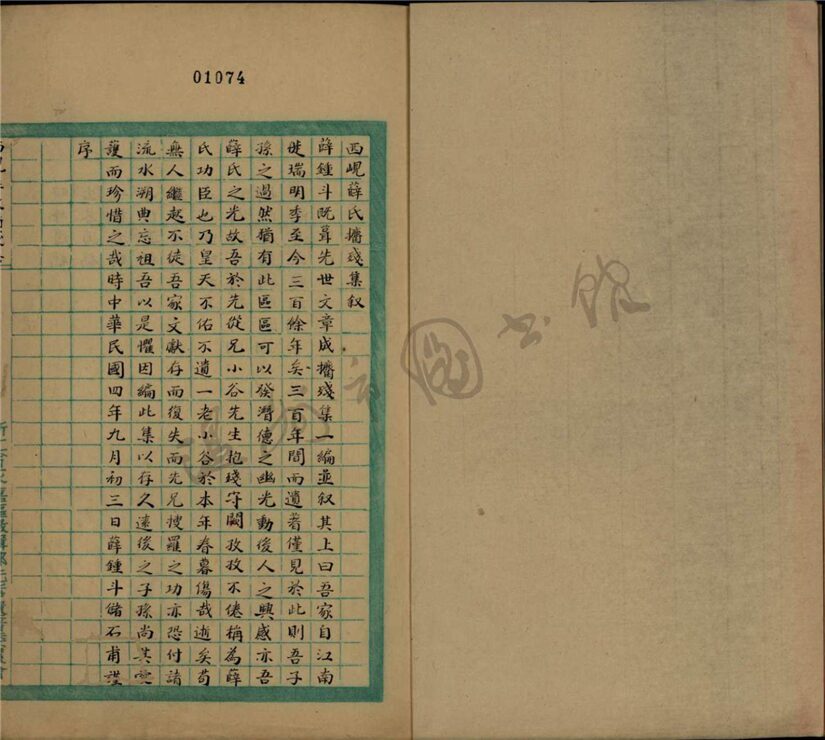 01074
西峴薛氏攟殘集叙
薛鍾斗既葺先世文章成攟殘集一編並叙其上曰吾家自江南
徙瑞明季至今三百餘年矣三百年間而遺著僅見於此則吾子
孫之過然猶有此區區可以發潛德之幽光動後人之興感亦吾
薛氏之光故吾於先從兄小谷先生抱殘守闕孜孜不倦稱為薛
氏功臣也乃皇天不佑不遺一老小谷於本年春暮傷哉逝矣苟
無人繼起不徒吾家文獻存而復失而先兄搜羅之功亦恐付諸
流水溯典忘祖吾以是懼因編此集以存久遠後之子孫尚其寶
護而珍惜之哉時中華民國四年九月初三日薛鍾斗儲石甫謹
序
圖書館